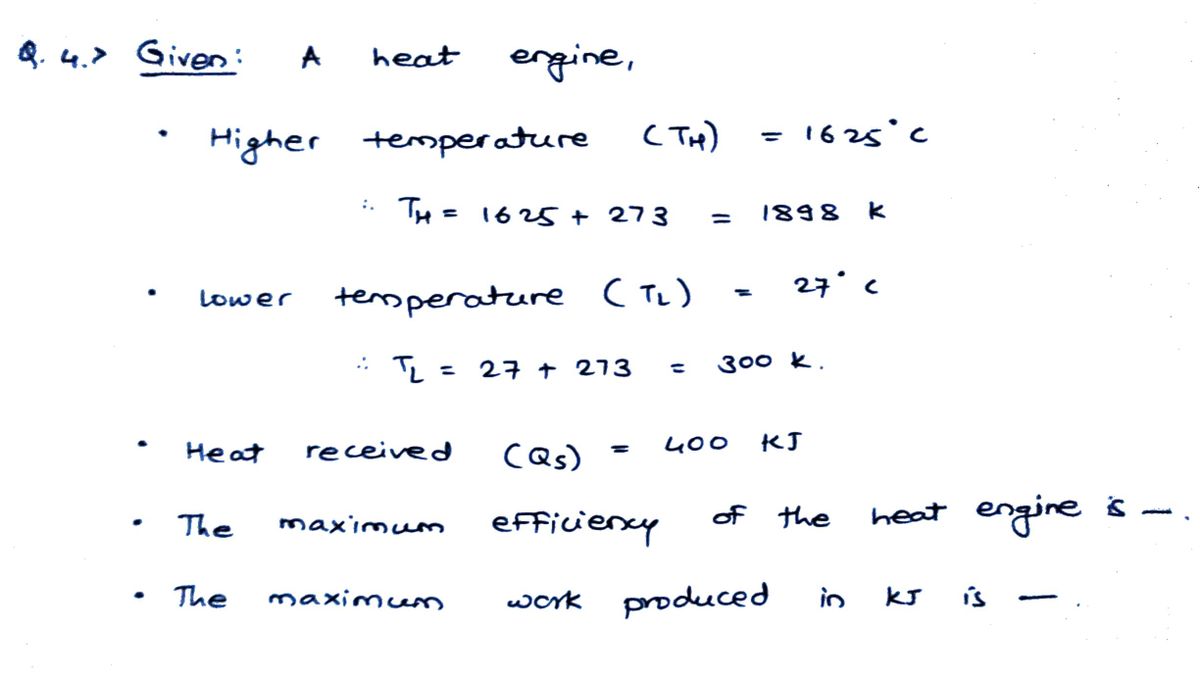 Q. 4.> Given: A heat engine,
• Higher temperature (TH) = 1625°C
∴ TH = 1625 + 273 = 1898 K
• Lower temperature (TL) = 27°C
∴ TL = 27 + 273 = 300 K.
• Heat received (QS) = 400 KJ
• The maximum efficiency of the heat engine is —.
• The maximum work produced in KJ is —.